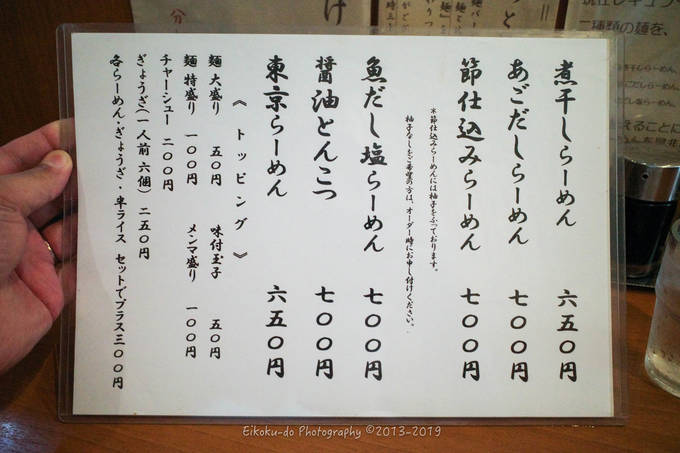 煮干しらーめん 六五〇円
あごだしらーめん 七〇〇円
節仕込みらーめん 七〇〇円
*節仕込みらーめんには柚子をふっております。
柚子なしをご希望の方は、オーダー時にお申し付けください。
魚だし塩らーめん 七〇〇円
醤油とんこつ 七〇〇円
東京らーめん 六五〇円
《トッピング》
麺 大盛り 五〇円 味付玉子 五〇円
麺 特盛り 一〇〇円 メンマ盛り 一〇〇円
チャーシュー 二〇〇円
ぎょうざ(一人前 六個) 二五〇円
各らーめん・ぎょうざ・半ライス セットでプラス三〇〇円
Eikoku-do Photography ©2013-2019